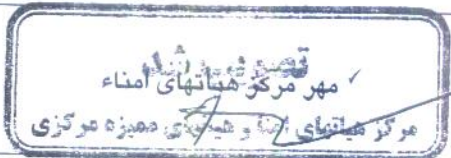 تصویب شد
مهر مرکز هیأتهای امناء
مرکز هیأتهای امنا و هیأتهای ممیزه مرکزی